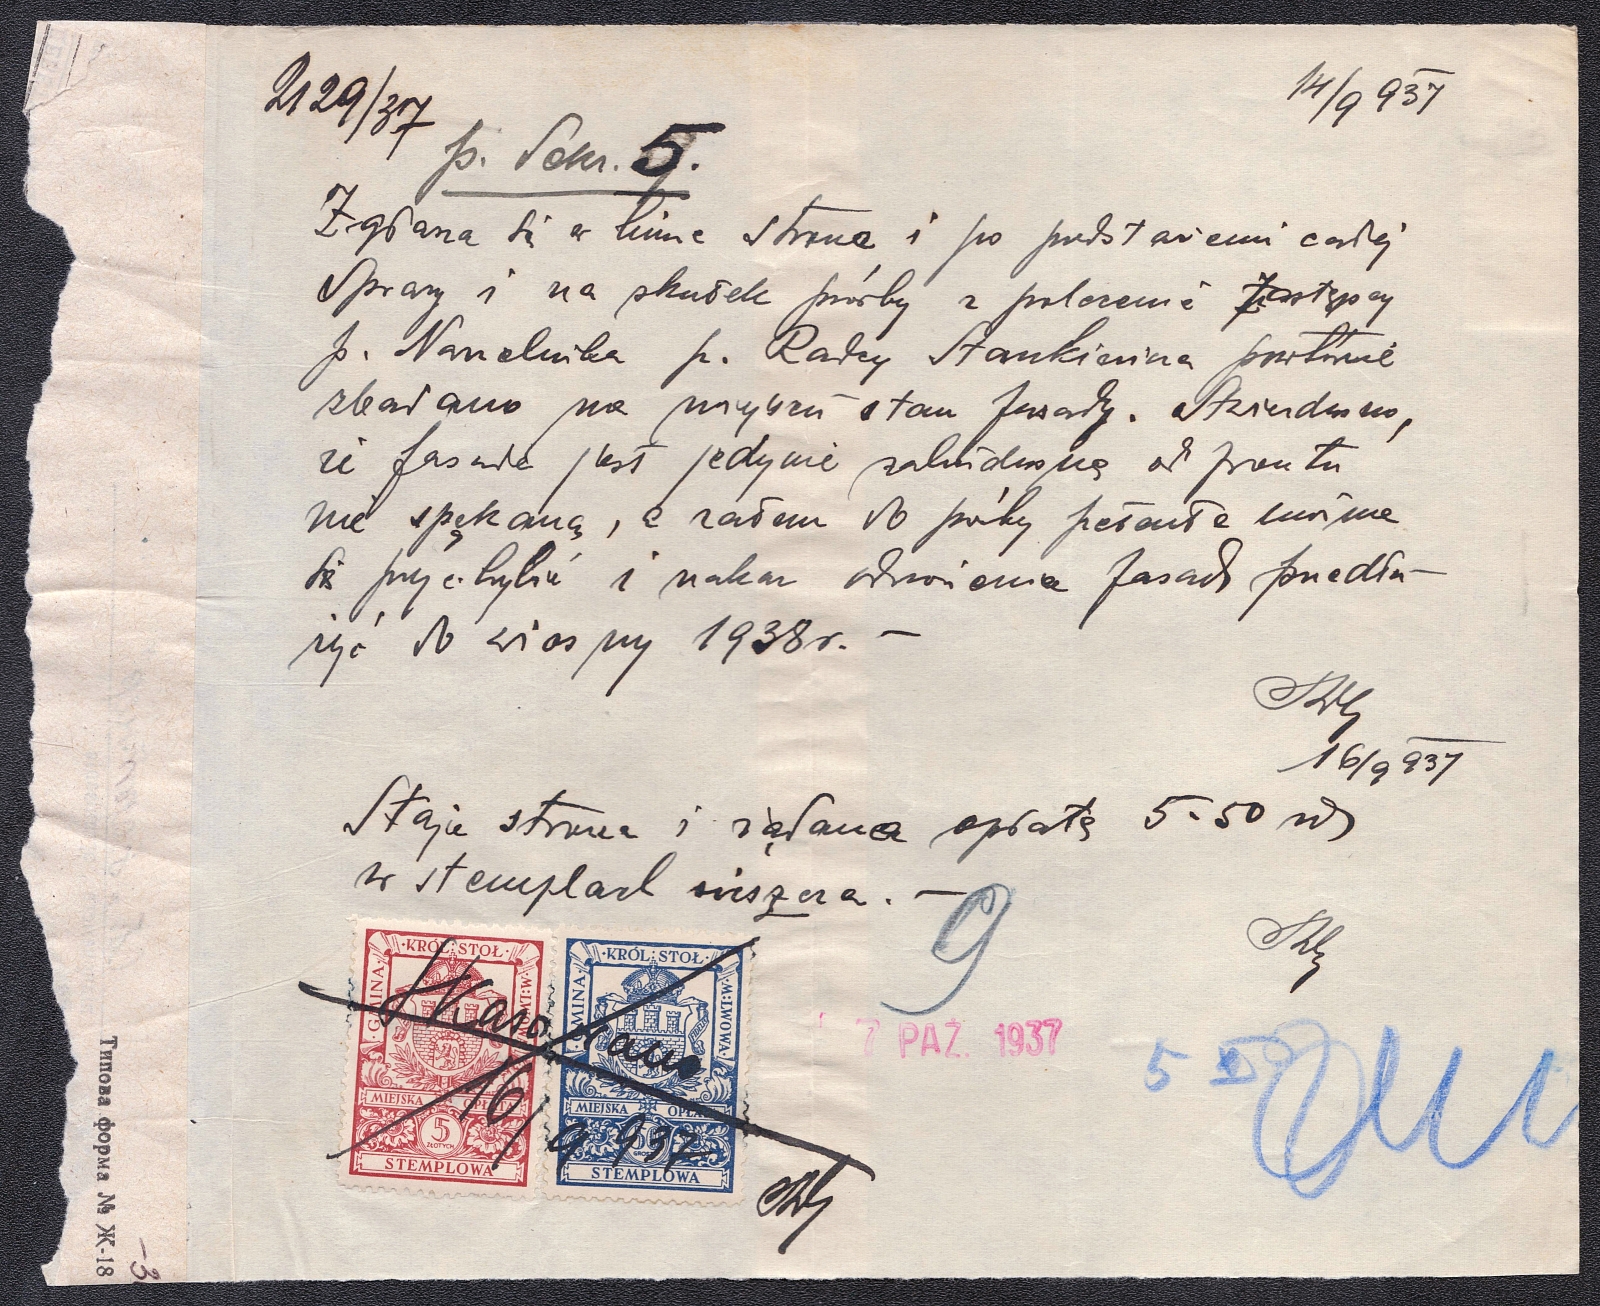 2129/37
14/9 937
p. Sekr. 5.
Zgłasza się w biurze strona i po przedstawieniu całej
Sprawy i na skutek prośby z polecenia Zastępcy
p. Naczelnika p. Radcy Stankiewicza powtórnie
zbadano na miejscu stan fasady. Stwierdzono,
że fasada jest jedynie zabrudzoną od frontu
nie spękaną, a zatem do prośby petenta można
się przychylić i nakaz odnowienia fasady przedłu-
żyć do wiosny 1938 r. —
16/9 937
Staje strona i żądaną opłatę 5.50 zł
w stemplach uiszcza. —
9
7 PAŹ. 1937
5 X
KRÓL: STOŁ:
GMINA
M: LWOWA
MIEJSKA OPŁATA
5
ZŁOTYCH
STEMPLOWA
KRÓL: STOŁ:
GMINA
M: LWOWA
MIEJSKA OPŁATA
STEMPLOWA
Skasowano
16/9 937
Типова форма № Ж-18
-3